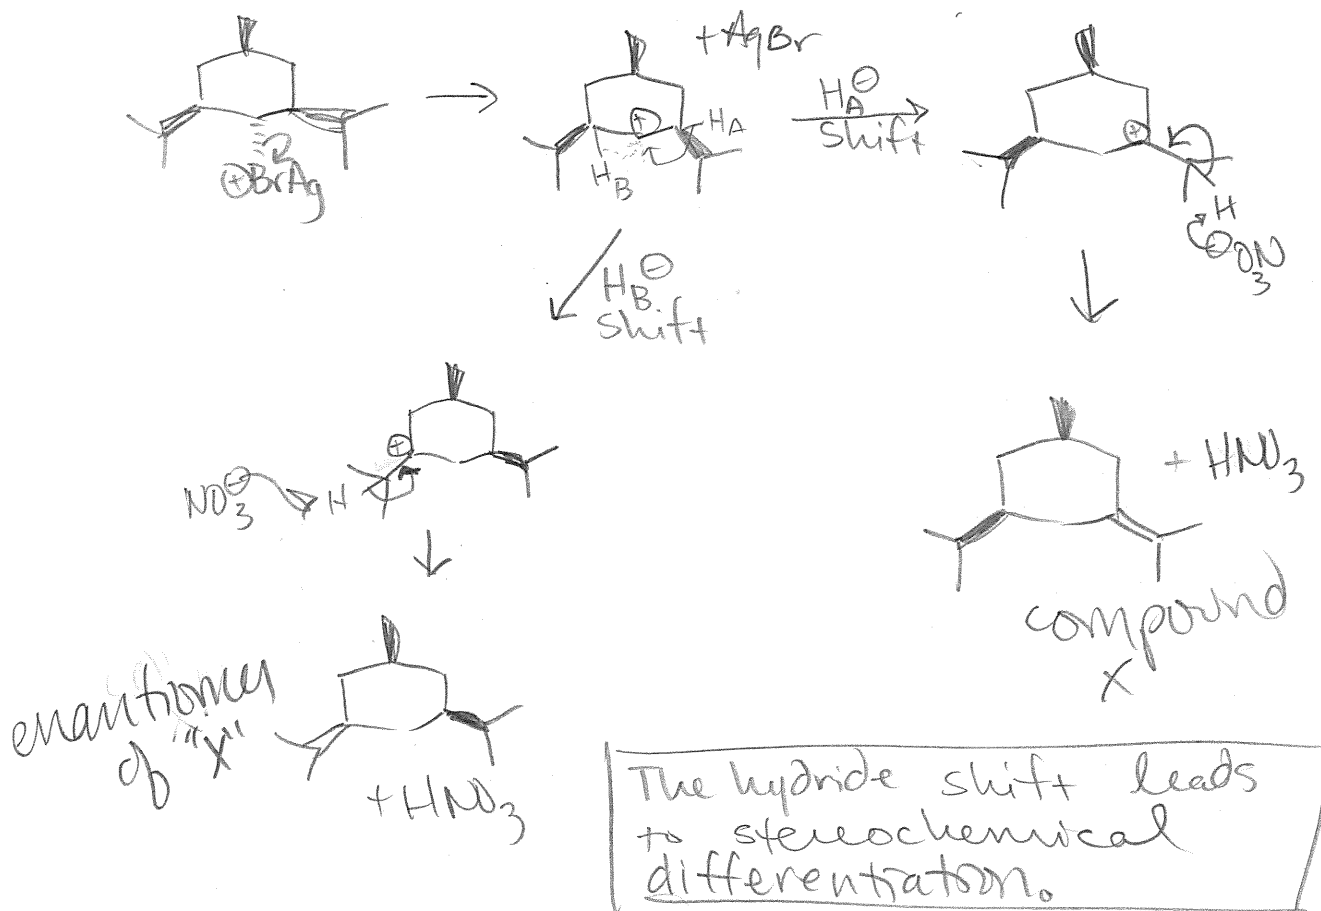 ⊕BrAg
+AgBr
⊕
H_A
H_B
H_A⊖
Shift
⊕
H
⊖ON
3
H_B⊖
Shift
⊕
NO3⊖
H
+ HNO3
compound
X
enantiomer
of "X"
+HNO3
The hydride shift leads
to stereochemical
differentiation.